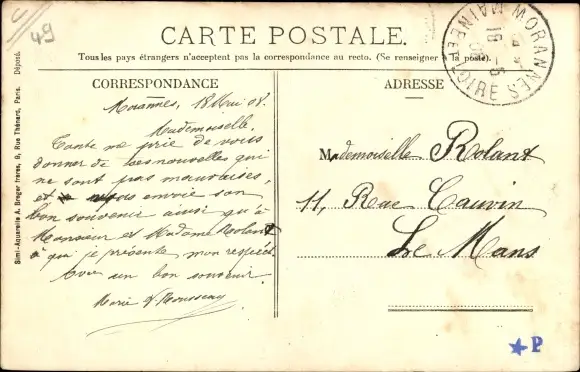 49
CARTE POSTALE.
Tous les pays étrangers n'acceptent pas la correspondance au recto. (Se renseigner à la poste).
CORRESPONDANCE
Morannes, 18 Mai 08.
Mademoiselle,
Tante me prie de vous
donner de ses nouvelles qui
ne sont pas mauvaises,
et vous envoie son
bon souvenir ainsi qu'à
Monsieur et Madame Rolant
à qui je présente mon respect.
bon souvenir.
Marie Rousseau
ADRESSE
Mademoiselle Rolant
11, Rue Cauvin
Le Mans
MORANNES
MAINE ET LOIRE
Simi-Aquarelle A. Breger frères, 9, Rue Thénard, Paris. Déposé.
P